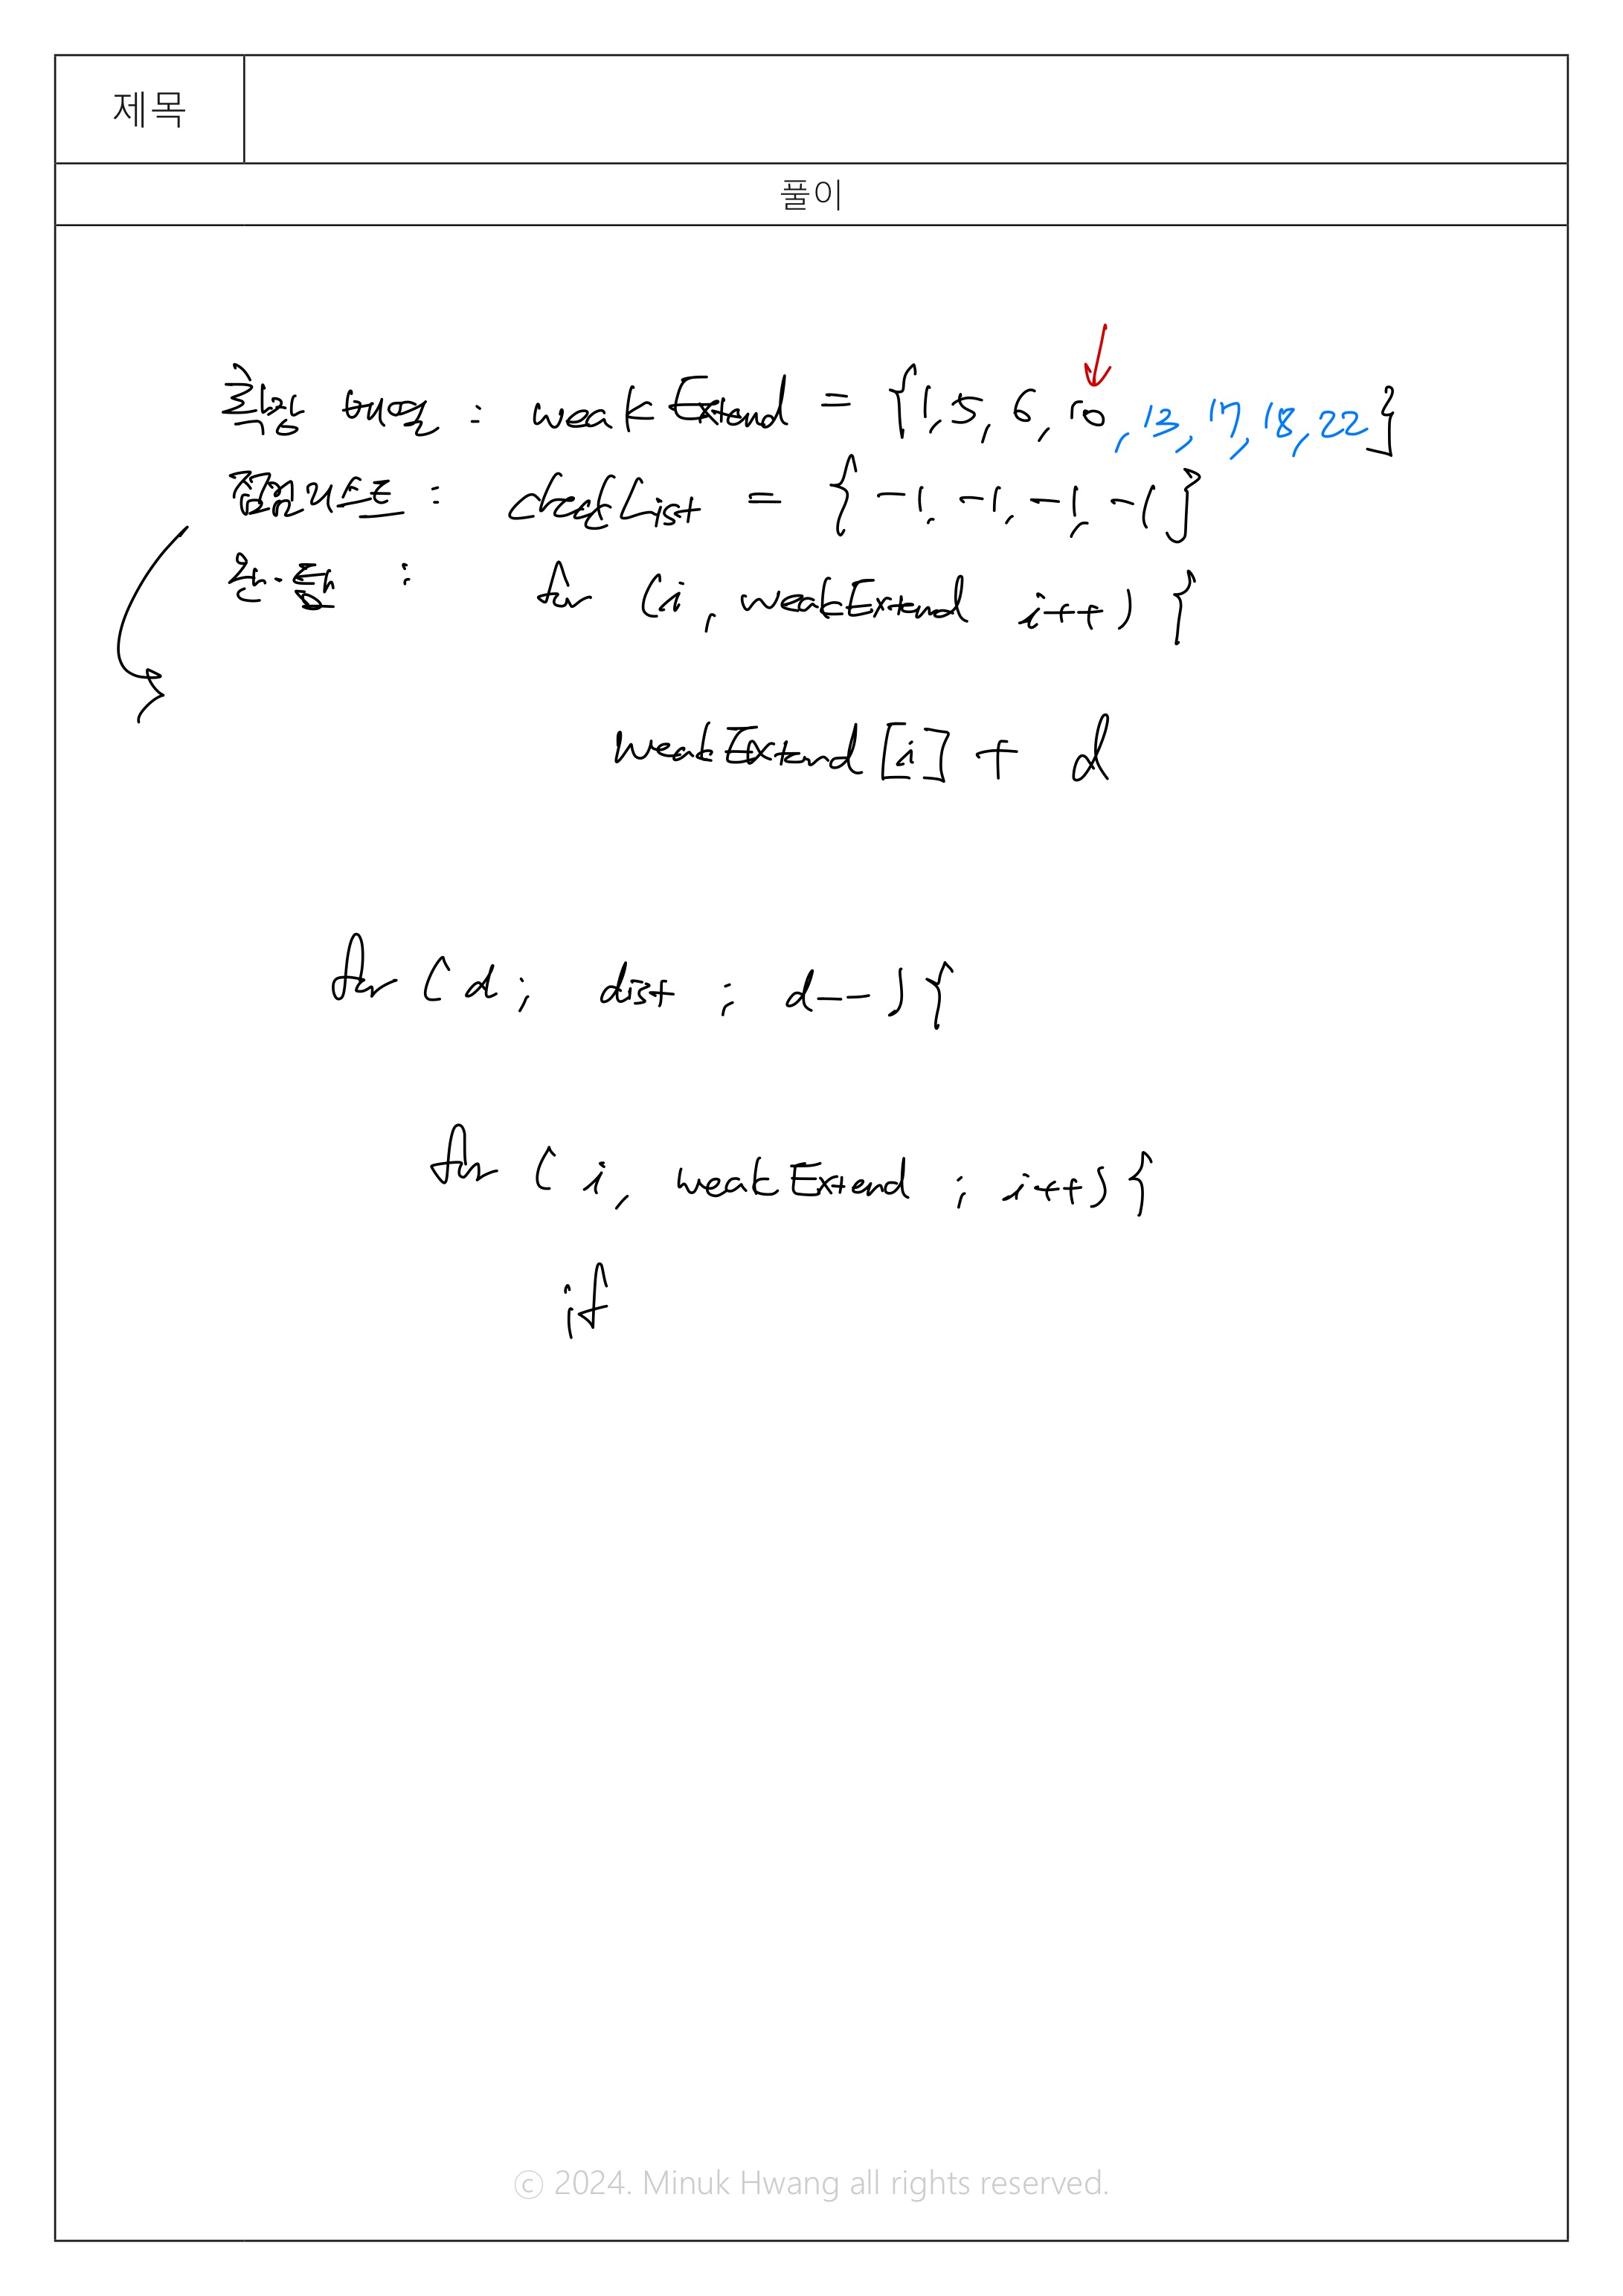 제목
풀이
확장 배열 : weakExtend = {1, 5, 6, 10, 13, 17, 18, 22}
점검리스트 : checkList = {-1, -1, -1, -1}
for (i, weakExtend i++) {
weakExtend[i] + d
for (d; dist ; d--) {
for (i, weakExtend ; i++) {
if
ⓒ 2024. Minuk Hwang all rights reserved.